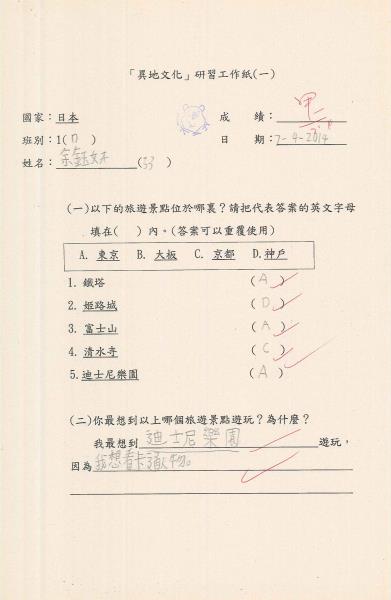 「異地文化」研習工作紙(一)
國家：日本 成績：甲
班別：1( D ) 日期：2-4-2014
姓名：余鈺 (33 )
(一)以下的旅遊景點位於哪裏？請把代表答案的英文字母
填在( )內。(答案可以重覆使用)
A. 東京 B. 大板 C. 京都 D.神戶
1. 鐵塔 ( A )
2. 姬路城 ( D )
3. 富士山 ( A )
4. 清水寺 ( C )
5.迪士尼樂園 ( A )
(二)你最想到以上哪個旅遊景點遊玩？為什麼？
我最想到 迪士尼樂園 遊玩，
因為我想看卡通人物。